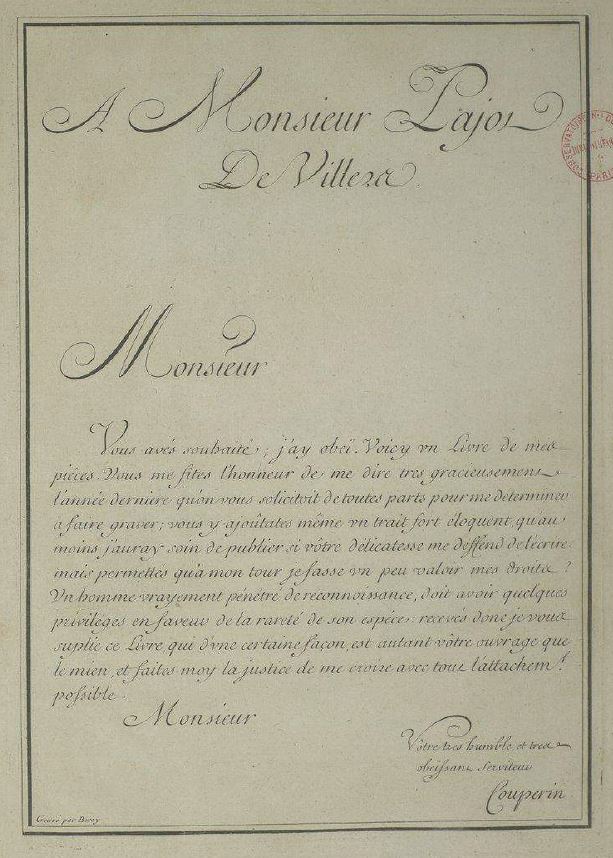 A Monsieur Pajot
De Villers
Monsieur
Vous avés souhaité; j'ay obeï. Voicy vn Livre de mes
pièces. Vous me fites l'honneur de me dire tres gracieusement
l'année derniere qu'on vous solicitoit de toutes parts pour me déterminer
a faire graver; vous y ajoûtates même vn trait fort éloquent qu'au
moins j'auray soin de publier si vôtre délicatesse me deffend de l'ecrire.
mais permettés qu'a mon tour je fasse vn peu valoir mes droits?
Vn homme vrayement pénétré de reconnoissance, doit avoir quelques
priviléges en faveur de la rareté de son espéce: recevés donc je vous
suplie ce Livre, qui d'vne certaine façon, est autant vôtre ouvrage que
le mien, et faites moy la justice de me croire avec tout l'attachem.t
possible.
Monsieur
Vôtre tres humble et tres
obeissant Serviteur
Couperin
Gravé par Berey